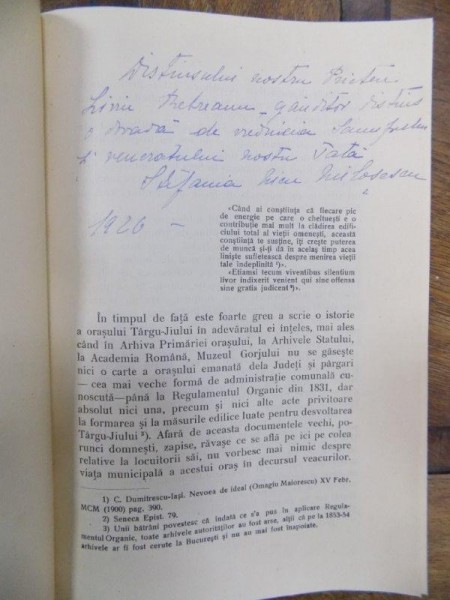 Distinsului nostru Prieten
Liviu Rebreanu – gânditor distins
o dovadă de vrednicia
și veneratului nostru Tată
Ștefania Nicu Miloșescu
1926 –
«Când ai conștiința că fiecare pic
de energie pe care o cheltuești e o
contribuție mai mult la clădirea edifi-
ciului total al vieții omenești, această
conștiință te susține, îți crește puterea
de muncă și-ți dă în același timp acea
liniște sufletească despre menirea vieții
tale îndeplinită ¹)».
«Etiamsi tecum viventibus silentium
livor indixerit venient qui sine offensa
sine gratia judicent ²)».
În timpul de față este foarte greu a scrie o istorie
a orașului Târgu-Jiului în adevăratul ei înțeles, mai ales
când în Arhiva Primăriei orașului, la Arhivele Statului,
la Academia Română, Muzeul Gorjului nu se găsește
nici o carte a orașului emanată dela Județi și pârgari
— cea mai veche formă de administrație comunală cu-
noscută—până la Regulamentul Organic din 1831, dar
absolut nici una, precum și nici alte acte privitoare
la formarea și la măsurile edilice luate pentru desvoltarea
Târgu-Jiului ³). Afară de aceasta documentele vechi, po-
runci domnești, zapise, răvașe ce se află pe ici pe colea
relative la locuitorii săi, nu vorbesc mai nimic despre
viața municipală a acestui oraș în decursul veacurilor.
1) C. Dumitrescu-Iași. Nevoea de ideal (Omagiu Maiorescu) XV Febr.
MCM (1900) pag. 390.
2) Seneca Epist. 79.
3) Unii bătrâni povestesc că îndată ce s'a pus în aplicare Regula-
mentul Organic, toate arhivele autorităților au fost arse, alții că pe la 1853-54
arhivele ar fi fost cerute la București și nu au mai fost înapoiate.